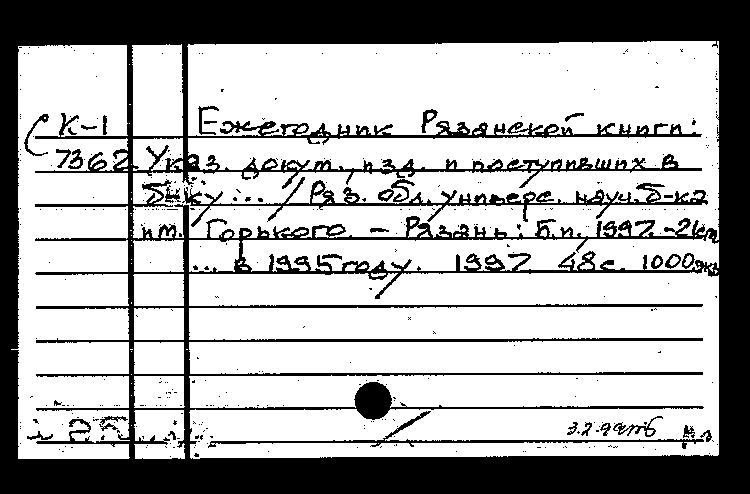 К-1 Ежегодник Рязанской книги:
7362 Указ. докум., изд. и поступивших в
б-ку ... / Ряз. обл. универс. науч. б-ка
им. Горького. - Рязань: Б.и., 1997. - 21см
... в 1995 году. 1997 48с. 1000экз